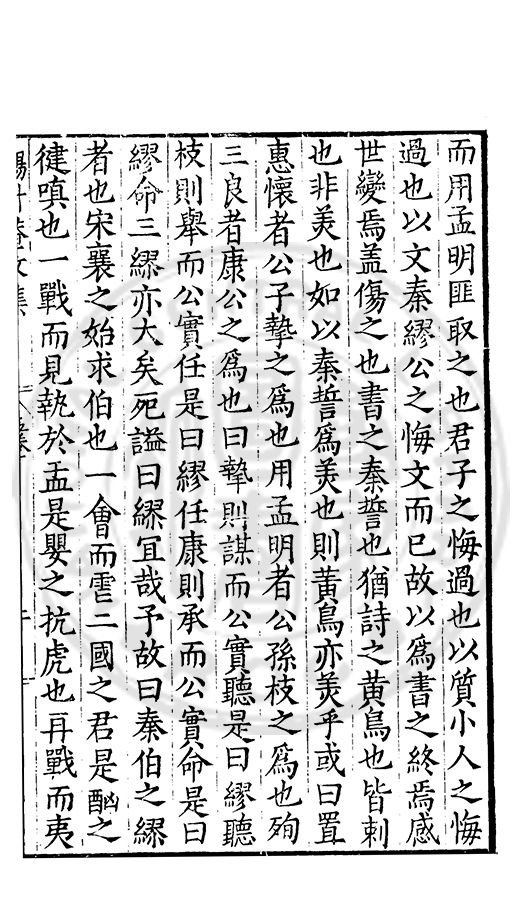 而用孟明匪取之也君子之悔過也以質小人之悔
過也以文秦繆公之悔文而已故以為書之終焉感
世變焉盖傷之也書之秦誓也猶詩之黄鳥也皆刺
也非羙也如以秦誓為羙也則黄鳥亦羙乎或曰置
惠懷者公子摯之為也用孟明者公孫枝之為也殉
三良者康公之為也曰摯則謀而公實聽是曰繆聽
枝則舉而公實任是曰繆任康則承而公實命是曰
繆命三繆亦大矣死謚曰繆冝哉予故曰秦伯之繆
者也宋襄之始求伯也一會而虐二國之君是酗之
徤嗔也一戰而見執於盂是嬰之抗虎也再戰而夷